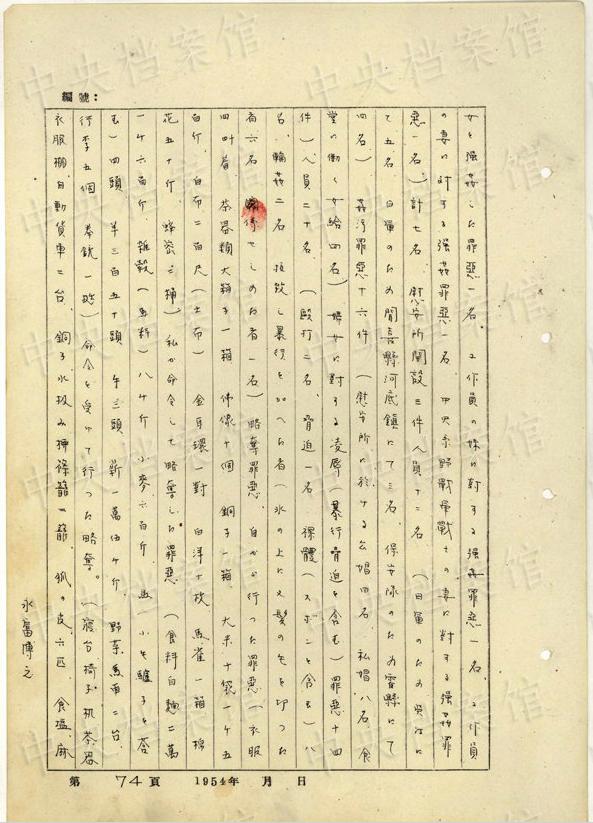 編號：
女を强姦した罪惡一名。工作員の妹に対する强姦罪惡一名。工作員
の妻に対する强姦罪惡一名。中央系野戰軍戰士の妻に対する强姦罪
惡一名）計七名。慰安所開設三件人員十二名（日軍のため
て五名 日軍のため聞喜縣河底鎭にて三名。保安隊のため霍縣にて
四名） 姦汚罪惡十六件（慰安所に於ける公娼四名 私娼八名 食
堂の働く女給四名）婦女に対する凌辱（暴行脅迫を含む）罪惡十四
件）人員二十名。（毆打二名。脅迫一名 裸體（ズボンを含む）八
名。輪姦二名 暴行を加へた者（氷の上に 髮の毛を切つた
者六名 せしめた者一名）略奪罪惡 自から行つた罪惡（衣服
四四着 茶器類大箱子一箱 佛像十個 銅子一箱。大米十袋一千五
百斤。白布二百尺（土布） 金耳環一対 白洋十枚 馬雀一箱 棉
花五十斤。蜂密三桶）私が命令して略奪した罪惡（食料白麵二萬
一千六百斤。雜穀（馬料）八千斤 小麥六百斤 馬 驢子を含
む）四頭 羊三百五十頭 牛三頭。薪一萬伍千斤。野菜馬車二台。
行李五個 拳銃一 ）命令を受けて行つた略奪。（寢台椅子。机茶器
衣服棚自動貨車二台。銅子 籠一籠 狐の皮六匹 食塩。麻
永富博之
第 74 頁 1954年 月 日
中央档案馆